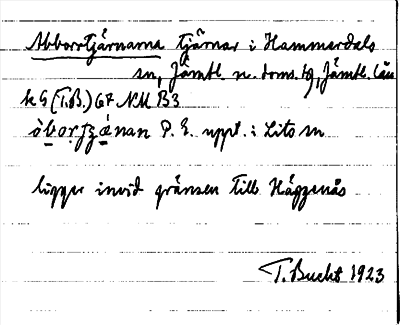 Abborrtjärnarna tjärnar i Hammerdals
sn, Jämtl. n. doms. tg, Jämtl. län
k G (T.B.) 67 NM B3
åborfzánan P. E. uppt. i Lits sn
ligger invid gränsen till Häggenås
T. Bucht 1923